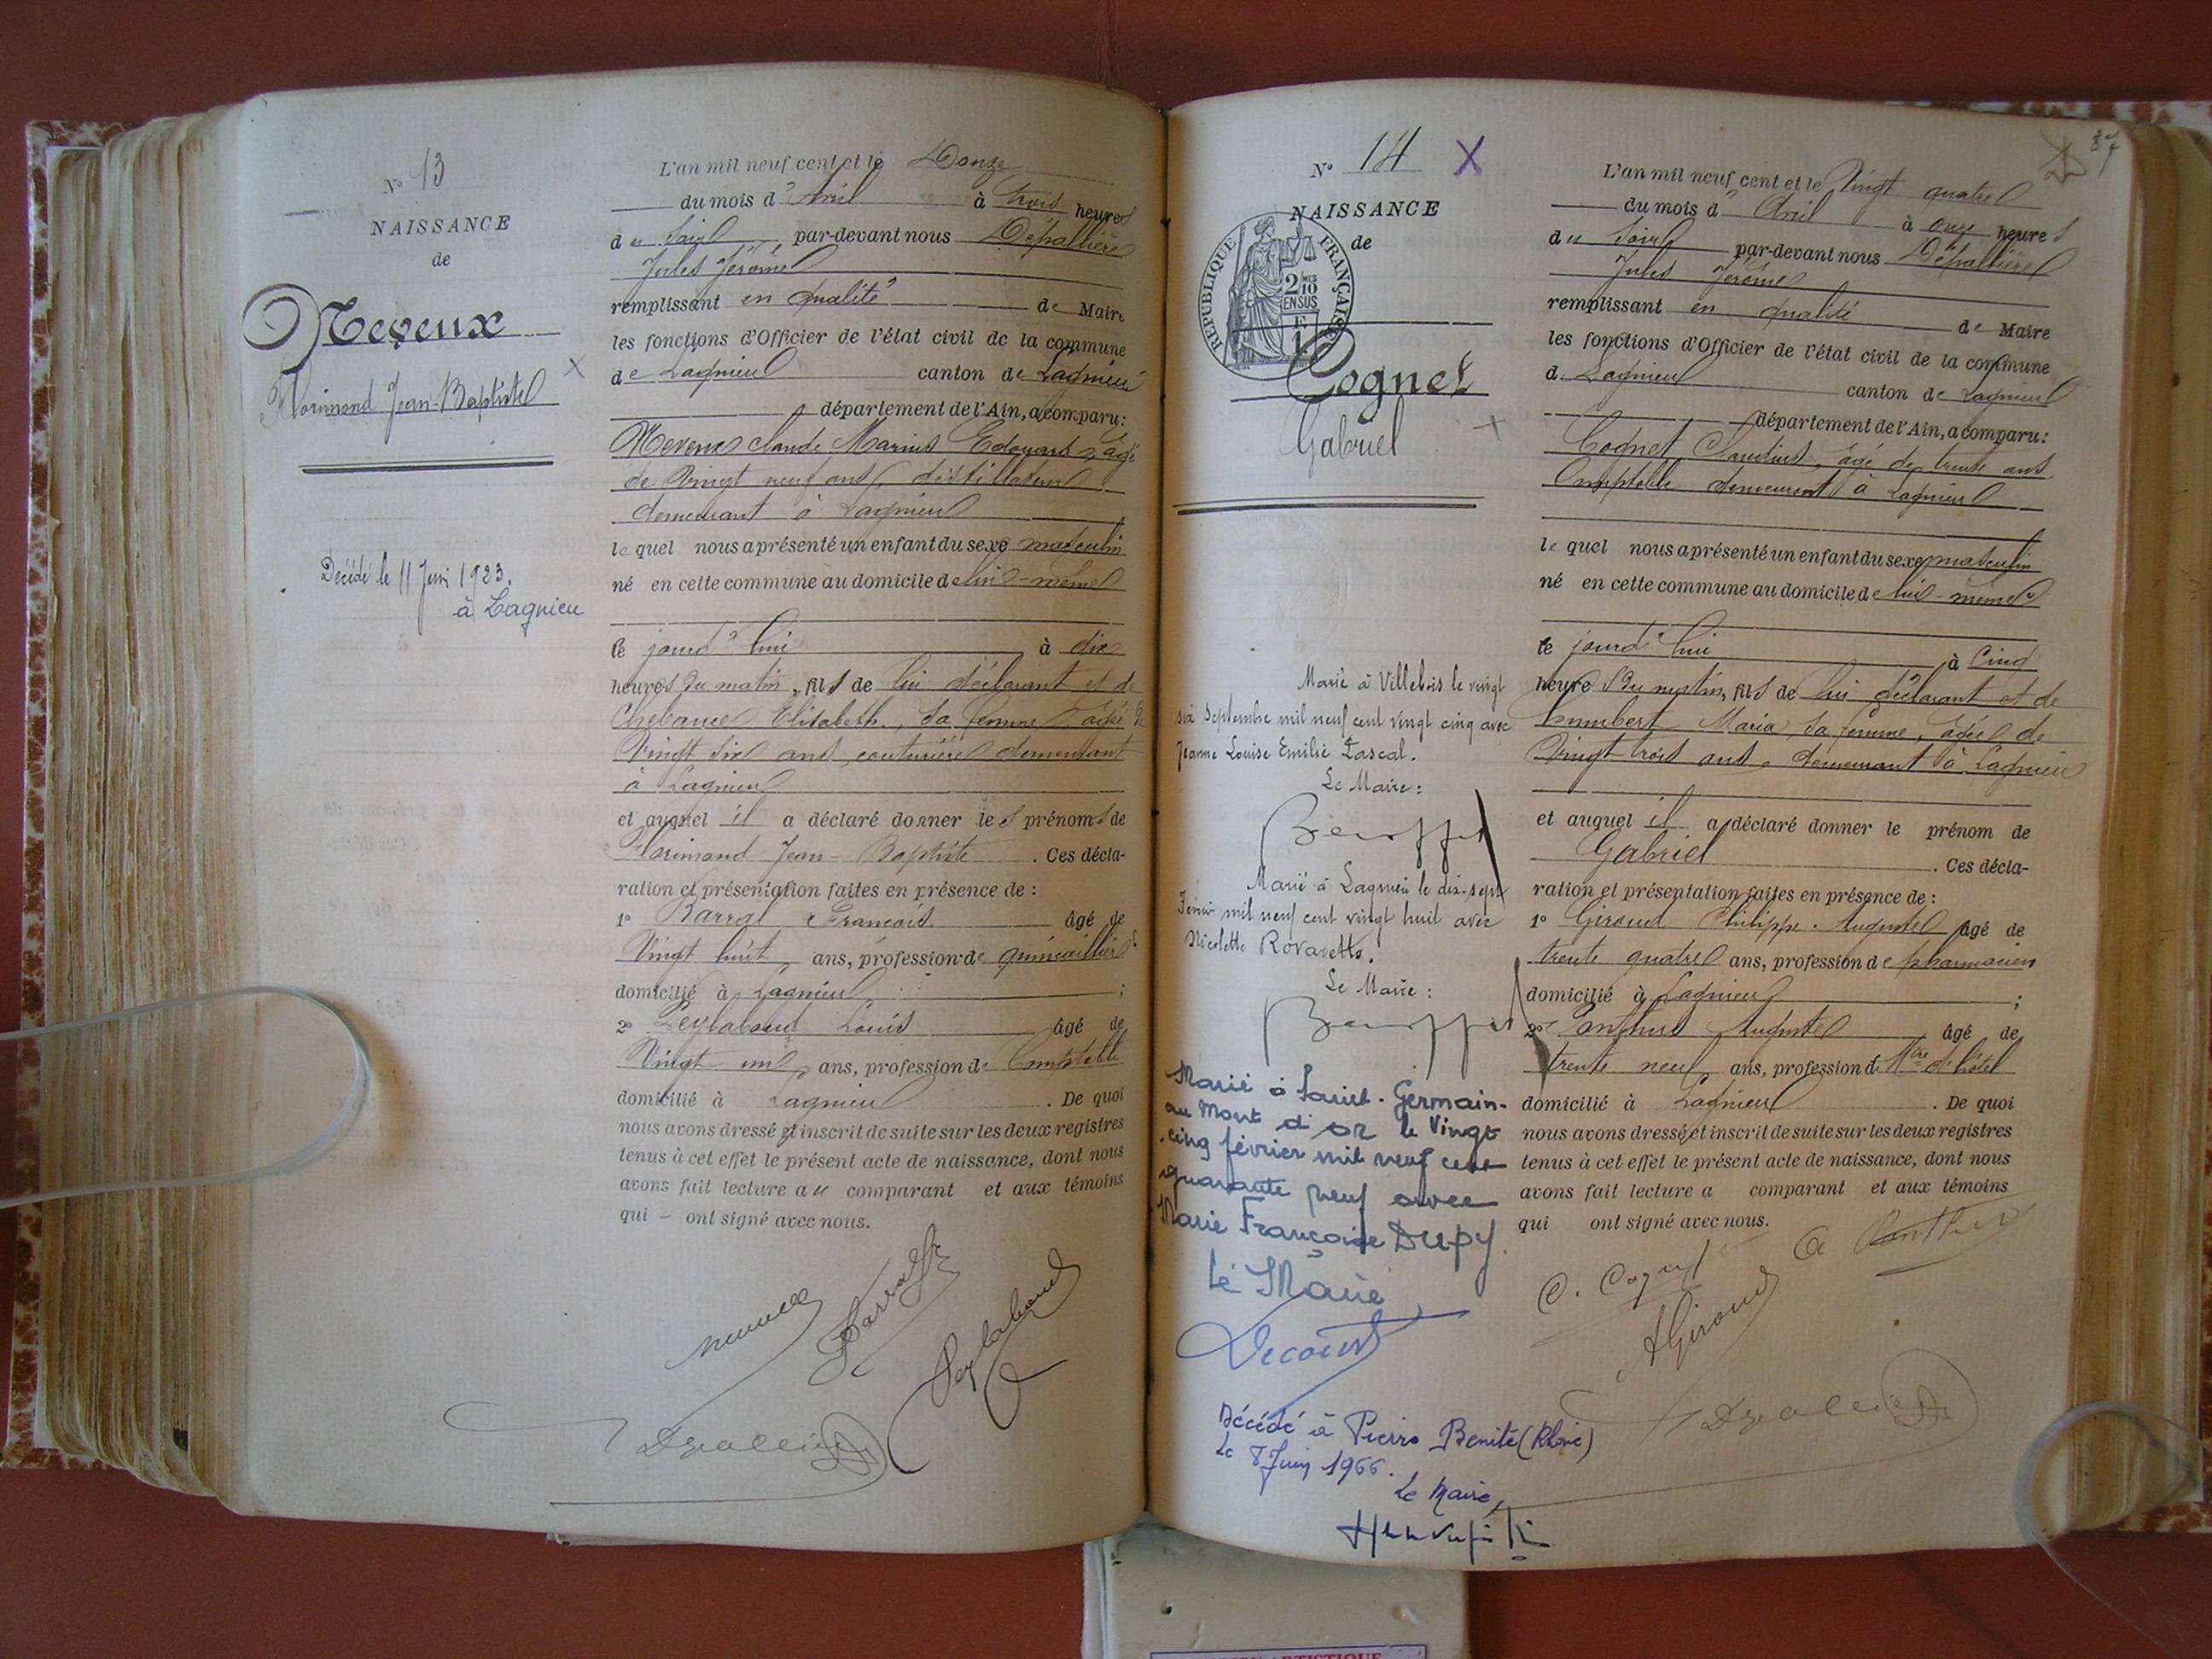 N° 13
NAISSANCE
de
Meveux
Florimond Jean-Baptiste
Décédé le 11 Juin 1923.
à Lagnieu
L'an mil neuf cent et le Douze
du mois d'Avril à trois heures
du Soir par-devant nous Dépallière
Jules Jérôme
remplissant en qualité de Maire
les fonctions d'Officier de l'état civil de la commune
de Lagnieu canton de Lagnieu
département de l'Ain, a comparu:
Meveux Claude Marius Edouard, âgé
de Vingt neuf ans, distillateur
demeurant à Lagnieu
lequel nous a présenté un enfant du sexe masculin
né en cette commune au domicile de lui-même
le jourd'hui à dix
heures du matin, fils de lui déclarant et de
Elisabeth, sa femme âgée de
Vingt six ans couturière demeurant
à Lagnieu
et auquel il a déclaré donner les prénoms de
Florimond Jean-Baptiste. Ces décla-
ration et présentation faites en présence de :
1° Barral François âgé de
Vingt huit ans, profession de quincaillier
domicilié à Lagnieu ;
2° Peylaboud Louis âgé de
Vingt un ans, profession de Comptable
domicilié à Lagnieu. De quoi
nous avons dressé et inscrit de suite sur les deux registres
tenus à cet effet le présent acte de naissance, dont nous
avons fait lecture au comparant et aux témoins
qui - ont signé avec nous.
Meveux Barral Peylaboud
Dépallière
87
N° 14 X
NAISSANCE
de
RÉPUBLIQUE FRANÇAISE
2/10
EN SUS
Cognet
Gabriel
Marié à Villebois le vingt
six Septembre mil neuf cent vingt cinq avec
Jeanne Louise Emilie Pascal.
Le Maire :
Marié à Lagnieu le dix-sept
Février mil neuf cent vingt huit avec
Nicolette Rovaretto.
Le Maire :
Marié à Saint-Germain-
au Mont d'or le Vingt
cinq février mil neuf cent
quarante neuf avec
Marie Françoise DUPY.
Le Maire
Décédé à Pierre Bénite (Rhône)
Le 8 Juin 1966.
Le Maire,
L'an mil neuf cent et le Vingt quatre
du mois d'Avril à onze heures
du Soir par-devant nous Dépallière
Jules Jérôme
remplissant en qualité de Maire
les fonctions d'Officier de l'état civil de la commune
de Lagnieu canton de Lagnieu
département de l'Ain, a comparu:
Cognet Claudius, âgé de trente ans
Comptable demeurant à Lagnieu
lequel nous a présenté un enfant du sexe masculin
né en cette commune au domicile de lui-même
le jourd'hui à Cinq
heures du matin, fils de lui déclarant et de
Humbert Maria, sa femme, âgée de
Vingt trois ans, demeurant à Lagnieu
et auquel il a déclaré donner le prénom de
Gabriel. Ces décla-
ration et présentation faites en présence de :
1° Giroud Philippe-Auguste âgé de
trente quatre ans, profession de pharmacien
domicilié à Lagnieu ;
2° Ponthus Auguste âgé de
trente neuf ans, profession de Mtre d'hôtel
domicilié à Lagnieu. De quoi
nous avons dressé et inscrit de suite sur les deux registres
tenus à cet effet le présent acte de naissance, dont nous
avons fait lecture a comparant et aux témoins
qui ont signé avec nous.
C. Cognet A Ponthus
AGiroud
Dépallière